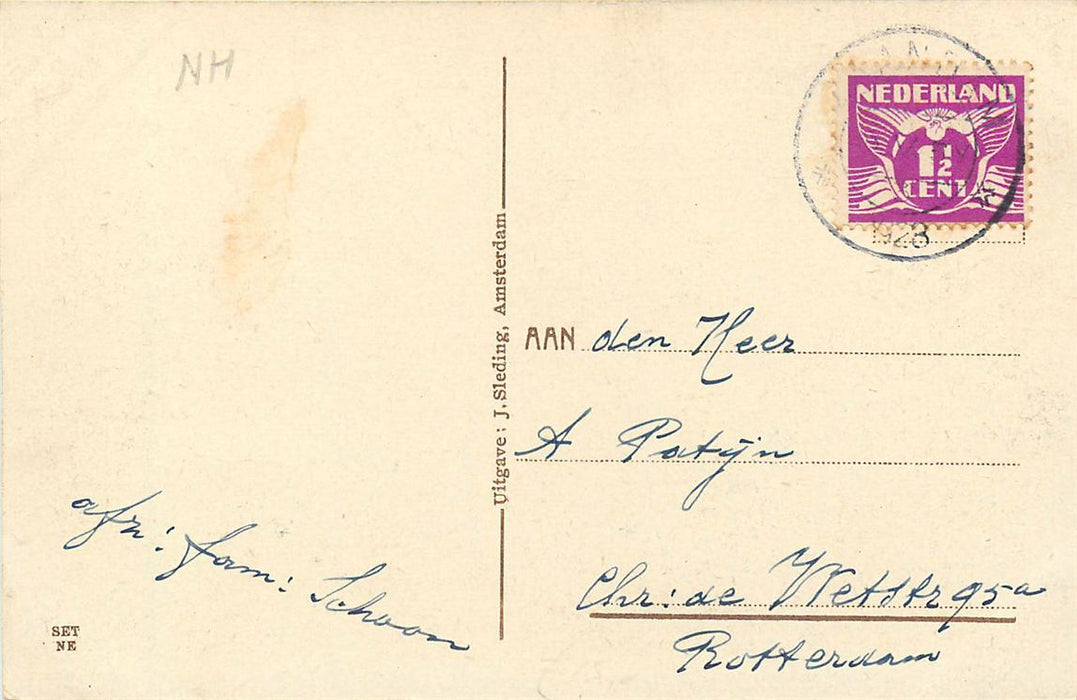 NH
NEDERLAND
1½
CENT
1928
Uitgave: J. Sleding, Amsterdam
AAN den Heer
A Patijn
Chr: de Wetstr 95a
Rotterdam
afz: fam: Schoon
SET
NE